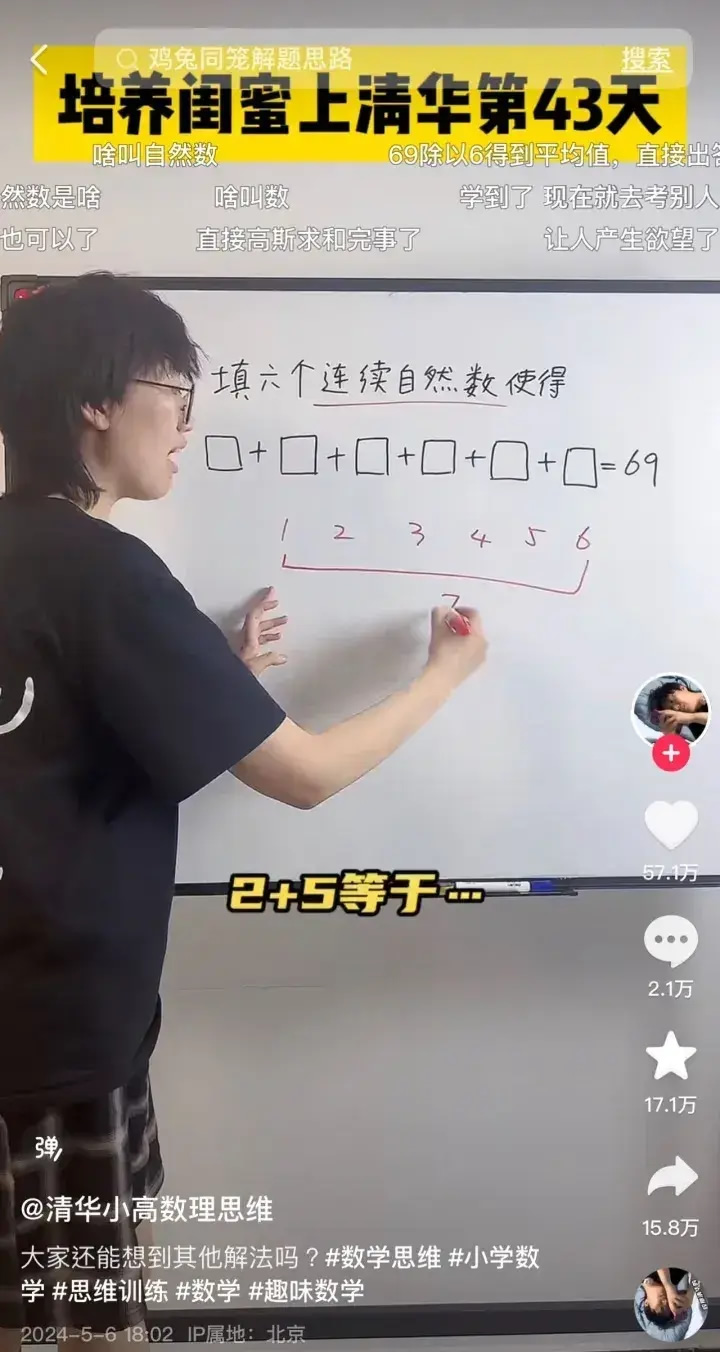 鸡兔同笼解题思路 搜索
培养闺蜜上清华第43天
啥叫自然数 69除以6得到平均值，直接出答
然数是啥 啥叫数 学到了 现在就去考别人
也可以了 直接高斯求和完事了 让人产生欲望了
填六个连续自然数使得
□+□+□+□+□+□=69
1 2 3 4 5 6
7
57.1万
2+5等于…
2.1万
17.1万
弹
15.8万
@清华小高数理思维
大家还能想到其他解法吗？#数学思维 #小学数
学 #思维训练 #数学 #趣味数学
2024-5-6 18:02 IP属地：北京